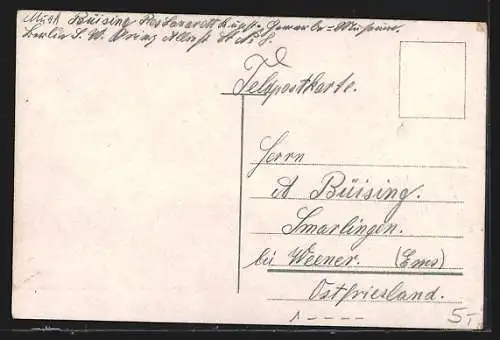 Musk. Büising Res Lazarett Kunst-Gewerbe-Museum.
Berlin S. W. Prinz Albrecht Str.
Feldpostkarte.
Herrn
A Büising.
Smarlingen.
bei Weener. (Ems)
Ostfriesland.
5,-